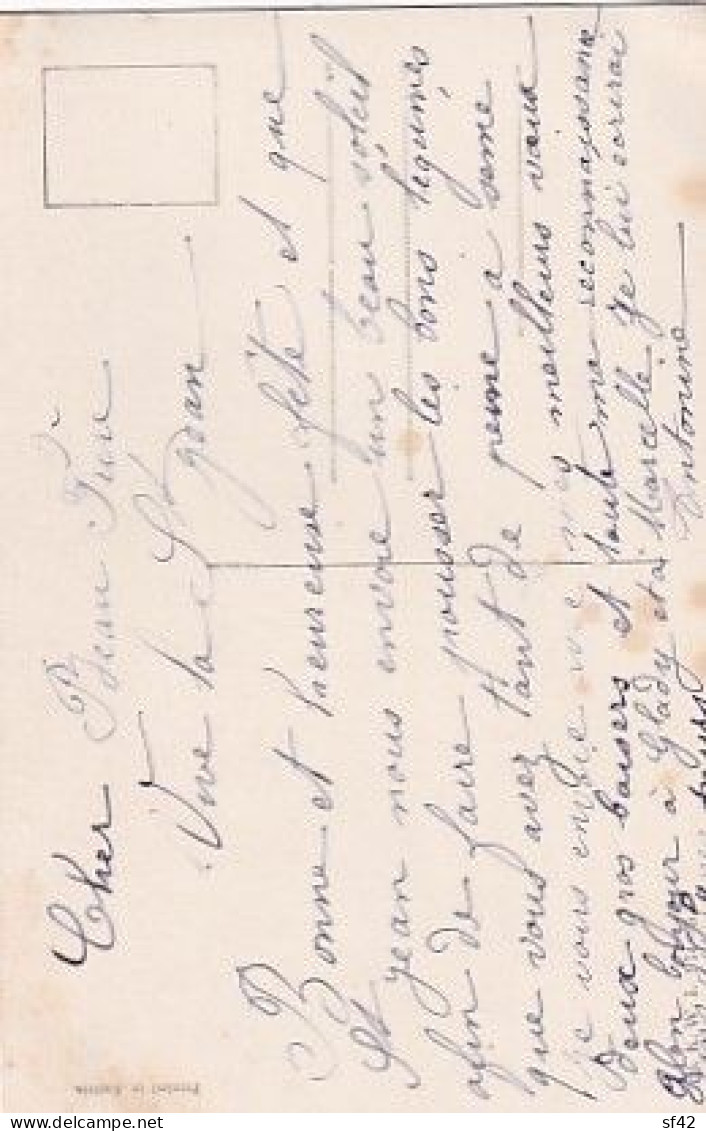 Cher Beau Père
Vive la St Jean
Bonne et heureuse fête et que
St Jean nous envoie un beau soleil
afin de faire pousser les bons légumes
que vous avez tant de peine a semé
je vous envoie avec mes meilleurs vœux
deux gros baisers et toute ma reconnaissance
Mon bonjour à Glady et à Marcelle je lui écrirai
Antonine
Printed in Austria
sf42